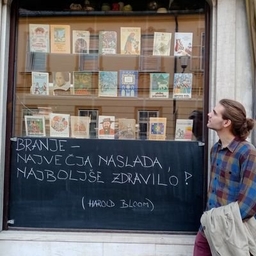 BRANJE –
NAJVEČJA NASLADA,
NAJBOLJŠE ZDRAVILO?
(HAROLD BLOOM)